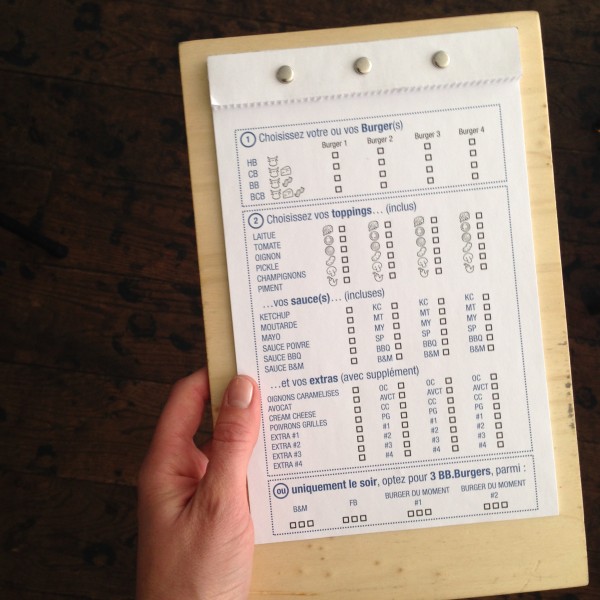 1 Choisissez votre ou vos Burger(s)
Burger 1 Burger 2 Burger 3 Burger 4
HB
CB
BB
BCB
2 Choisissez vos toppings... (inclus)
LAITUE
TOMATE
OIGNON
PICKLE
CHAMPIGNONS
PIMENT
...vos sauce(s)... (incluses)
KETCHUP KC KC KC
MOUTARDE MT MT MT
MAYO MY MY MY
SAUCE POIVRE SP SP SP
SAUCE BBQ BBQ BBQ BBQ
SAUCE B&M B&M B&M B&M
...et vos extras (avec supplément)
OIGNONS CARAMELISES OC OC OC
AVOCAT AVCT AVCT AVCT
CREAM CHEESE CC CC CC
POIVRONS GRILLES PG PG PG
EXTRA #1 #1 #1 #1
EXTRA #2 #2 #2 #2
EXTRA #3 #3 #3 #3
EXTRA #4 #4 #4 #4
OU uniquement le soir, optez pour 3 BB.Burgers, parmi :
B&M FB BURGER DU MOMENT #1 BURGER DU MOMENT #2